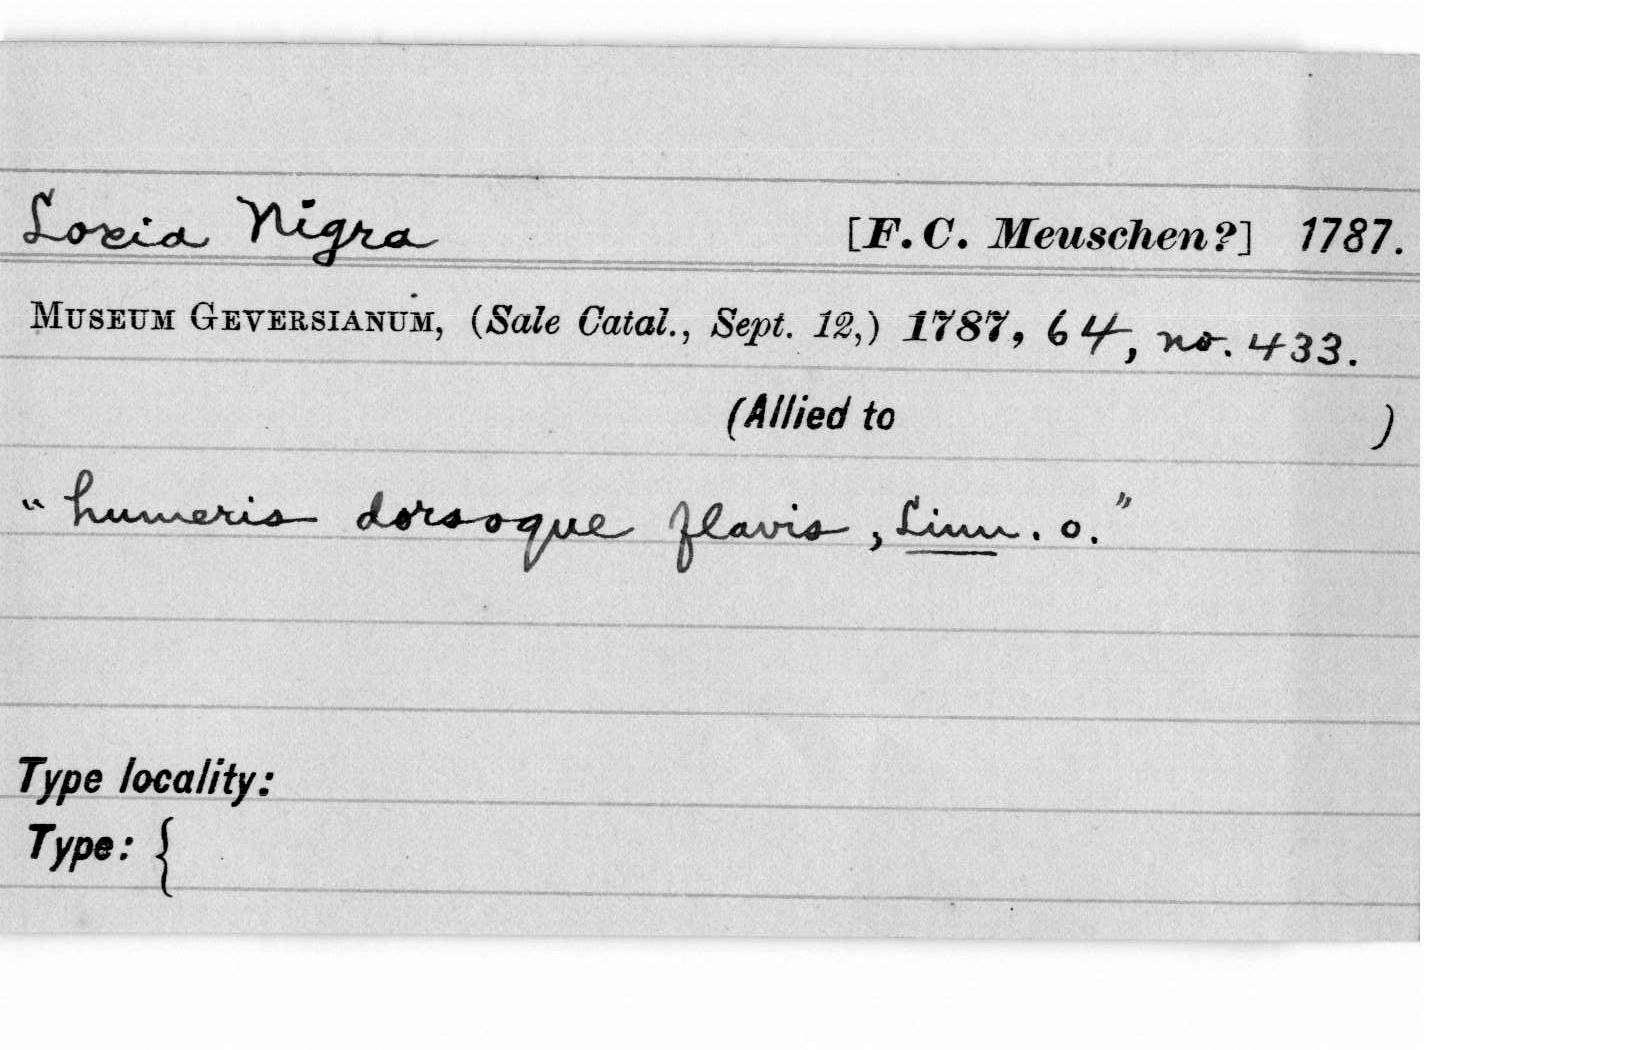 Loxia Nigra [F. C. Meuschen?] 1787.
Museum Geversianum, (Sale Catal., Sept. 12,) 1787, 64, no. 433.
(Allied to )
"humeris dorsoque flavis, Linn. o."
Type locality:
Type: {